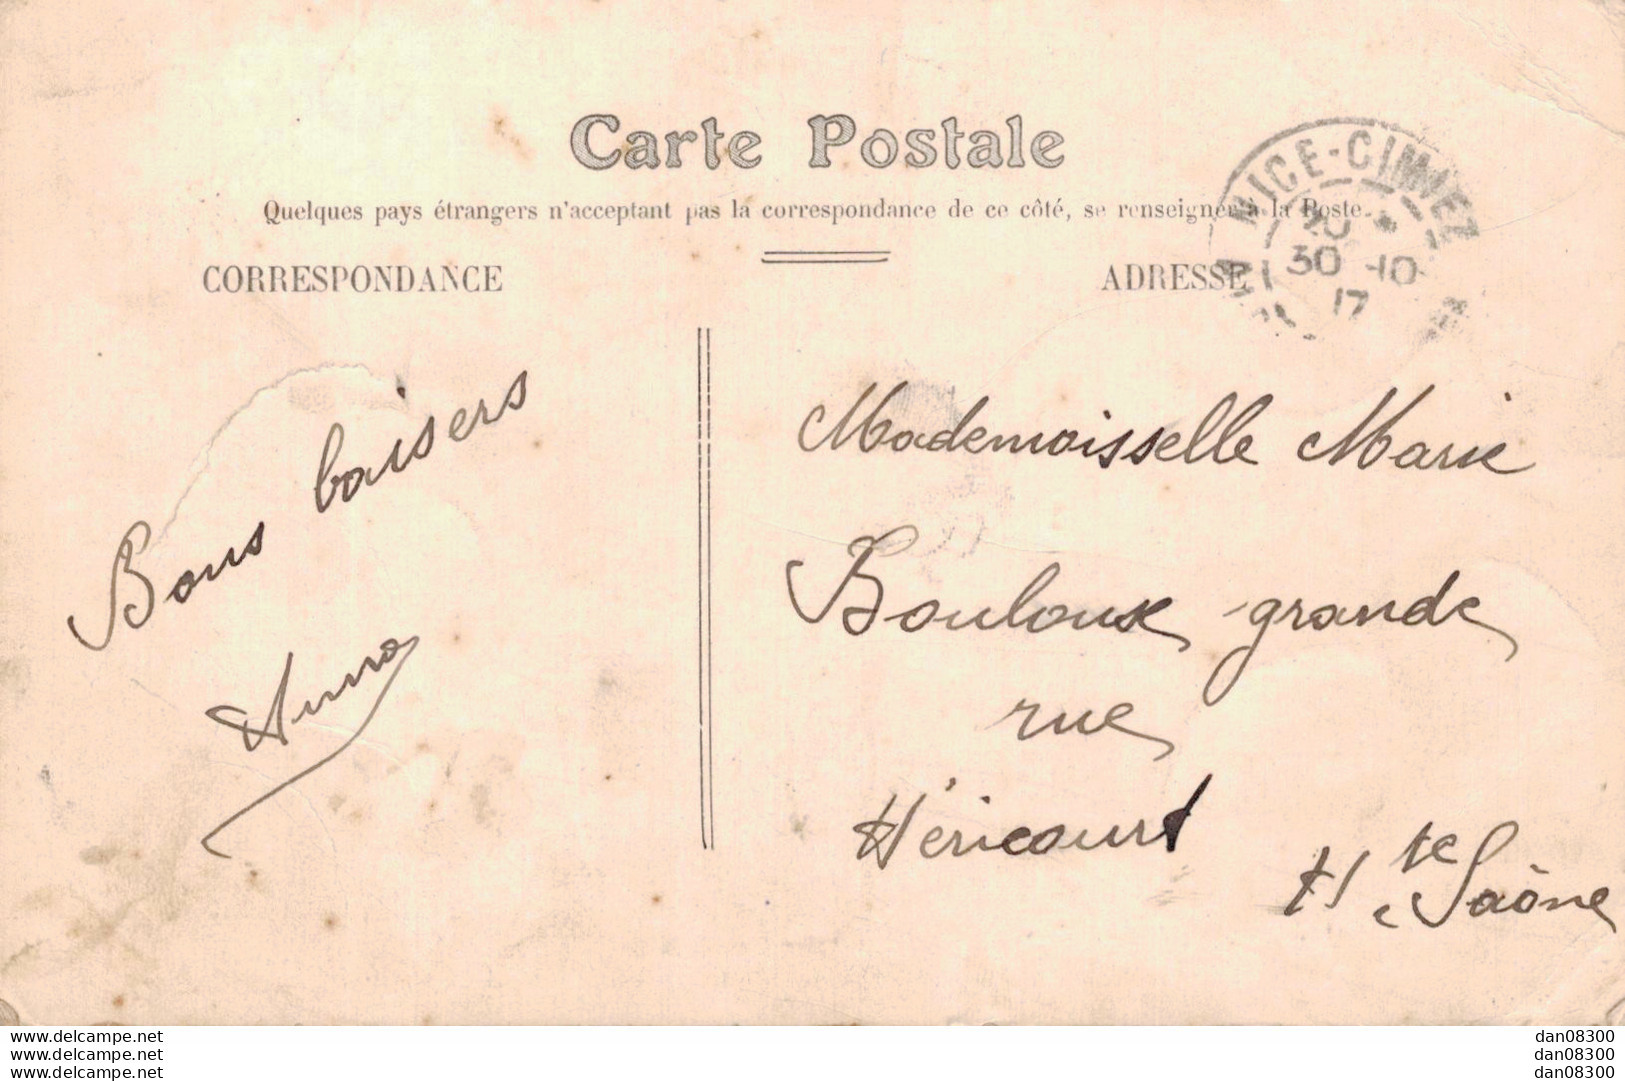 Carte Postale
Quelques pays étrangers n'acceptent pas la correspondance de ce côté, se renseigner à la Poste.
CORRESPONDANCE
ADRESSE
NICE-CIMIEZ
20 *
30 -10
17
Bons baisers
Mademoisselle Marie
Bouloux grande
rue
Héricourt
Hte Saône
www.delcampe.net
www.delcampe.net
www.delcampe.net
dan08300
dan08300
dan08300